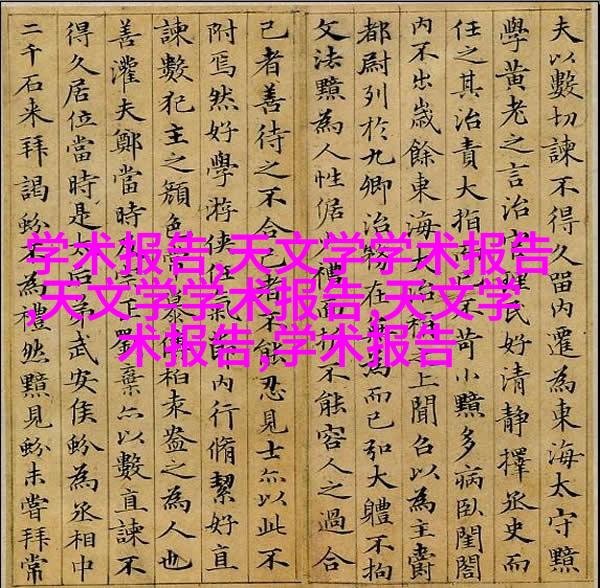 学术报告,天文学学术报告
,天文学学术报告,天文学
术报告,学术报告
夫以數切諫不得久留内遷為東海太守黯
學黄老之言治官理民好清靜擇丞史而
任之其治責大指而不苛小黯多病臥閨閤
内不出歲餘東海大治稱之上聞召以為主爵
都尉列於九卿治務在無為而已弘大體不拘
文法黯為人性倨少禮面折不能容人之過合
己者善待之不合己者不能忍見士亦以此不
附焉然好學游俠任氣節内行脩絜好直
諫數犯主之顏色常慕傅柏袁盎之為人也
善灌夫鄭當時及宗正劉棄亦以數直諫不
得久居位當時是太后弟武安侯蚡為丞相中
二千石来拜謁蚡不為禮然黯見蚡未嘗拜常